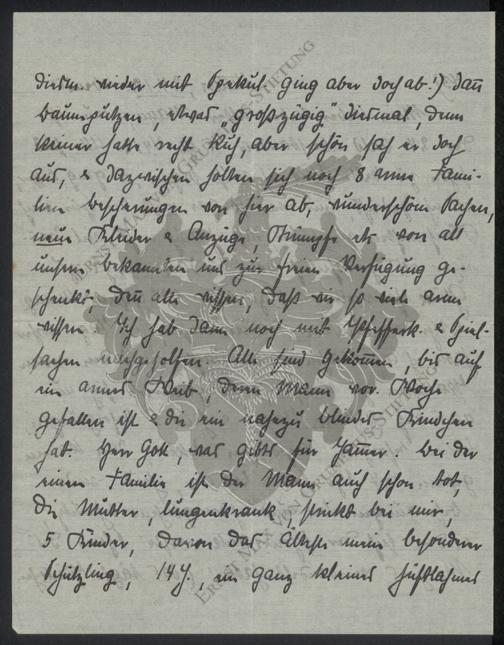 diesm. wieder mit Spekul. ging aber doch ab!) dann
baumputzen, etwas „großzügig" diesmal, denn
keiner hatte recht Ruh, aber schön sah er doch
aus, & dazwischen holten sich noch 8 arme Fami-
lien bescherungen von hier ab, wunderschöne Sachen,
neue Kleider & Anzüge, Strümpfe etc von all
unsern bekannten uns zur freien Verfügung ge-
schenkt, denn alle wissen, daß wir so viele arme
wissen. Ich hab dann noch mit Pfefferk. & Spiel-
sachen ausgeholfen. Alle sind gekommen, bis auf
ein armes Weib, deren Mann vor. Woche
gefallen ist & die ein nahezu blindes Kindchen
hat. Herr Gott, was gibts für Jammer. bei der
einen Familie ist der Mann auch schon tot,
die Mutter, lungenkrank, strickt bei mir,
5 Kinder, davon das Älteste mein besonderer
Schützling, 14 J., ein ganz kleines hüftlahmes
ERNST MAX VON GRUNELIUS-STIFTUNG